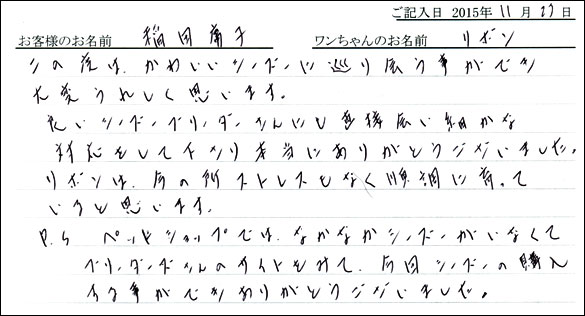 ご記入日 2015年 11月 27日
お客様のお名前 稲田 ワンちゃんのお名前 リボン
この度は、かわいいシーズーに巡り会う事ができ
大変うれしく思います。
シーズーブリーダーさんにも直接会い細かな
対応をして下さり本当にありがとうございました。
リボンは、今の所ストレスもなく順調に育って
いると思います。
P.S ペットショップでは、なかなかシーズーがいなくて
ブリーダーズさんのサイトをみて、今回シーズーの購入
する事ができありがとうございました。